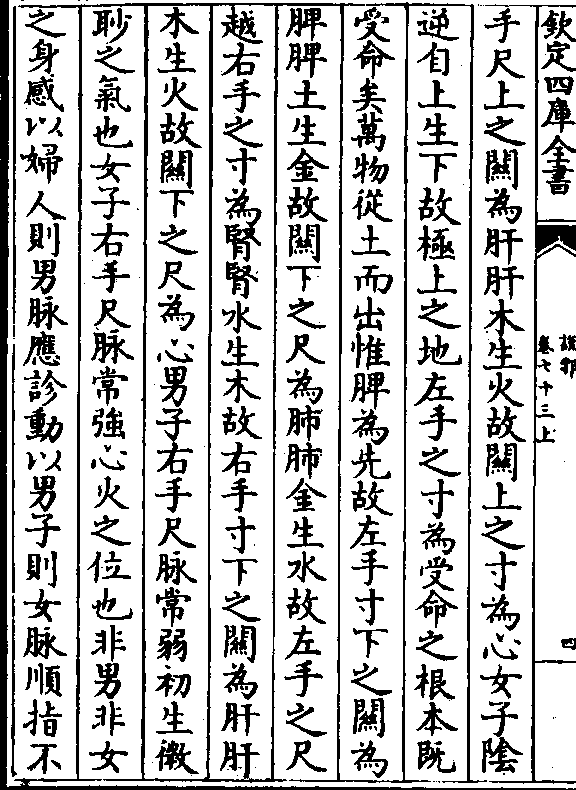 欽定四庫全書
說郛
卷七十三上
四
手尺上之關為肝肝木生火故關上之寸為心女子陰
逆自上生下故極上之地左手之寸為受命之根本既
受命矣萬物從土而出惟脾為先故左手寸下之關為
脾脾土生金故關下之尺為肺肺金生水故左手之尺
越右手之寸為腎腎水生木故右手寸下之關為肝肝
木生火故關下之尺為心男子右手尺脉常弱初生微
眇之氣也女子右手尺脉常強心火之位也非男非女
之身感以婦人則男脉應診動以男子則女脉順指不